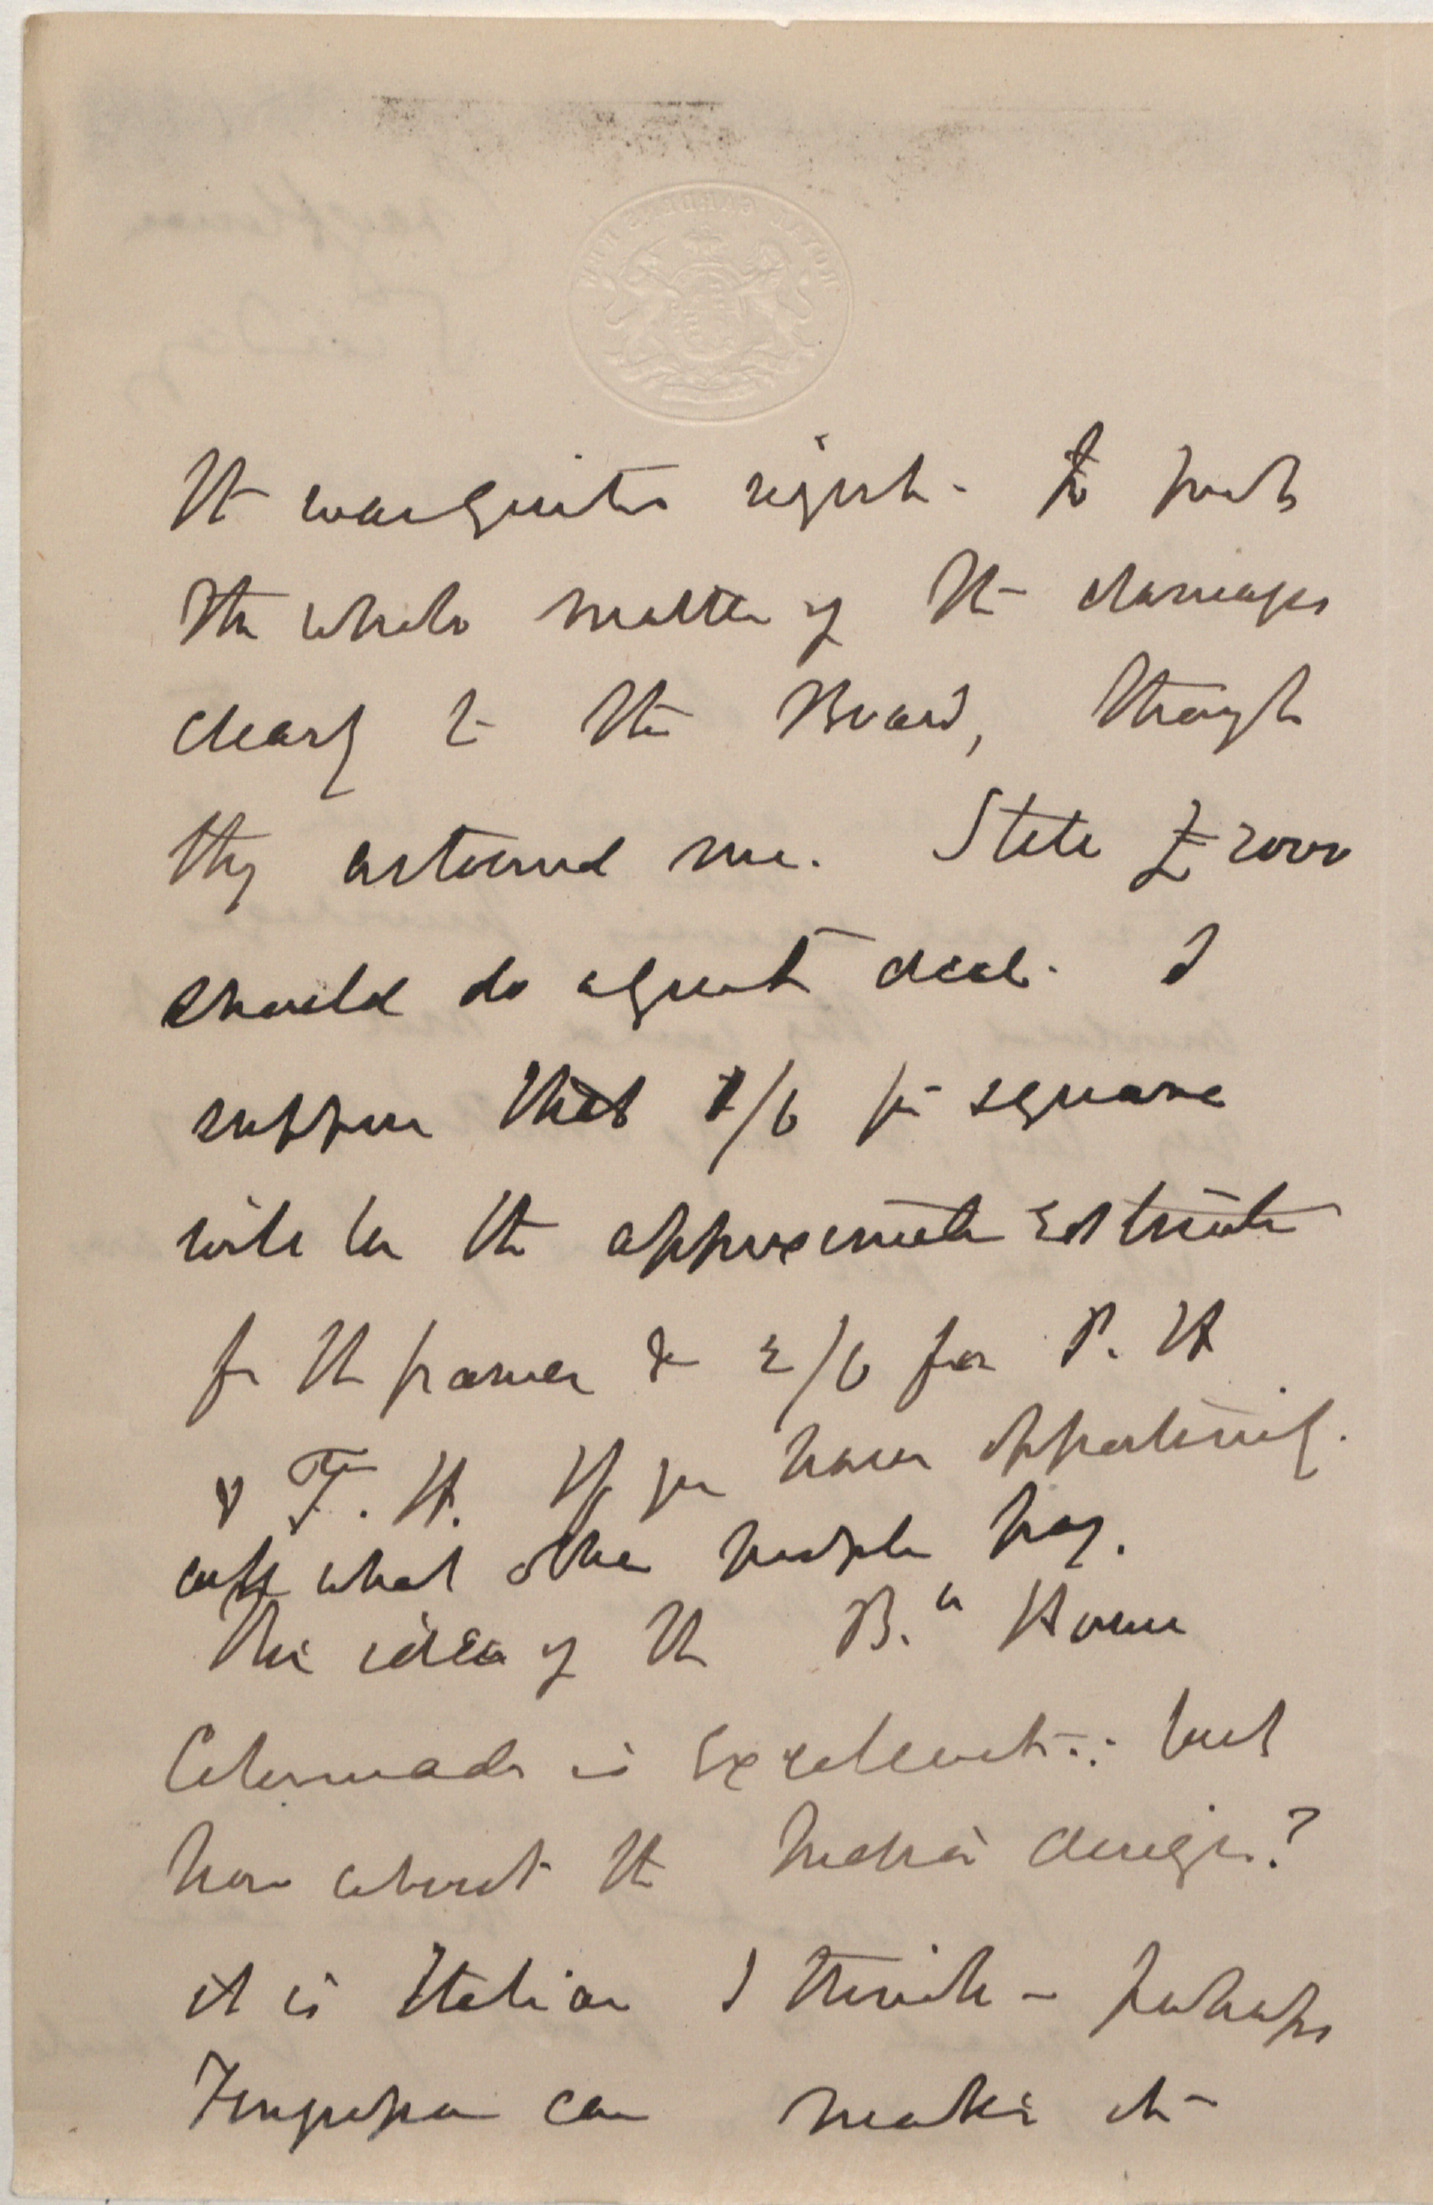 It was quite right - to put
the whole matter of the damages
clearly to the Board, though
they astound me. State £2000
should do a great deal. I
suppose that 1/6 per square
will be the approximate Estimate
for the frames & 2/6 for P. H
& T. H. If you have opportunity.
ask what other people pay.
The idea of the B. House
Colonnade is Excellent: but
how about the design?
it is Italian I think - perhaps
can make it